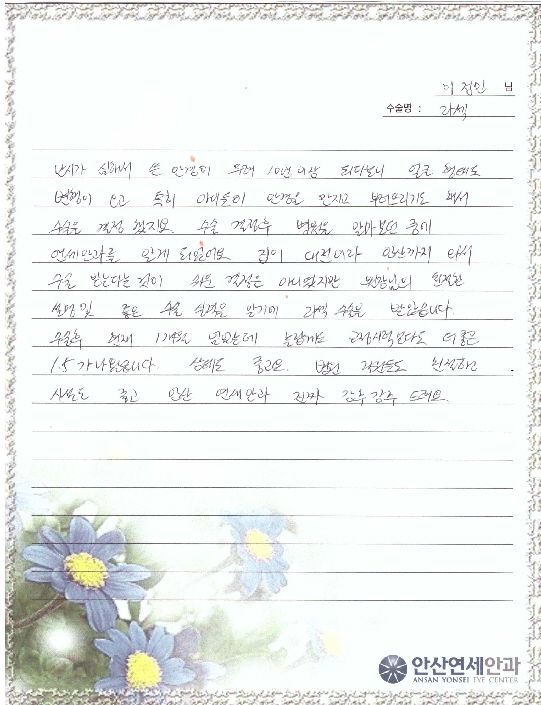 이정인 님
수술명 : 라섹
난시가 심해서 쓴 안경이 무려 10년 이상 되다보니 얼굴 형에도
변형이 오고 특히 아이들이 안경을 만지고 부러뜨리기도 해서
수술을 결정 했지요. 수술 결정후 병원을 알아보던 중에
연세안과를 알게 되었어요. 집이 대전이라 안산까지 와서
수술 받는다는 것이 쉬운 결정은 아니었지만 원장님의
설명 및 좋은 수술 실력을 알기에 라섹 수술을 받았습니다.
수술후 현재 1개월 넘었는데 놀랍게도 교정시력보다도 더 좋은
1.5가 나왔습니다. 상태도 좋고요. 병원 직원들도 친절하고
시설도 좋고 안산 연세안과 진짜 강추강추 드려요.
안산연세안과
ANSAN YONSEI EYE CENTER